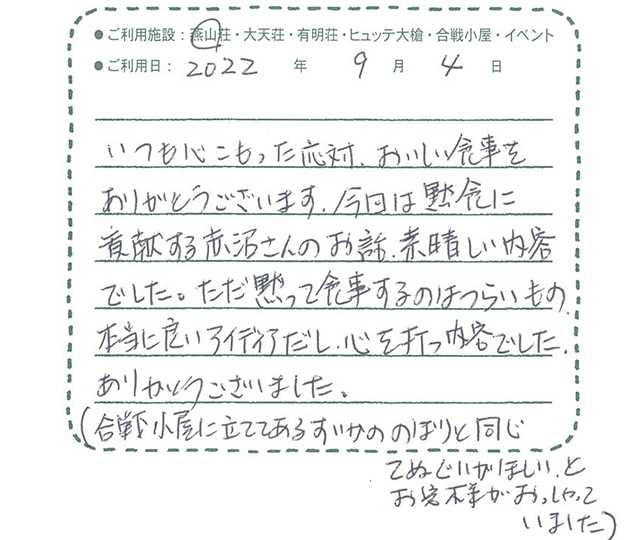 ●ご利用施設：燕山荘・大天荘・有明荘・ヒュッテ大槍・合戦小屋・イベント
●ご利用日：2022 年 9 月 4 日
いつも心こもった応対、おいしい食事を
ありがとうございます。今回は黙食に
貢献する赤沼さんのお話、素晴しい内容
でした。ただ黙って食事するのはつらいもの、
本当に良いアイディアだし、心を打つ内容でした。
ありがとうございました。
(合戦小屋に立ててあるすいかののぼりと同じ
てぬぐいがほしい、と
お客様がおっしゃって
いました)